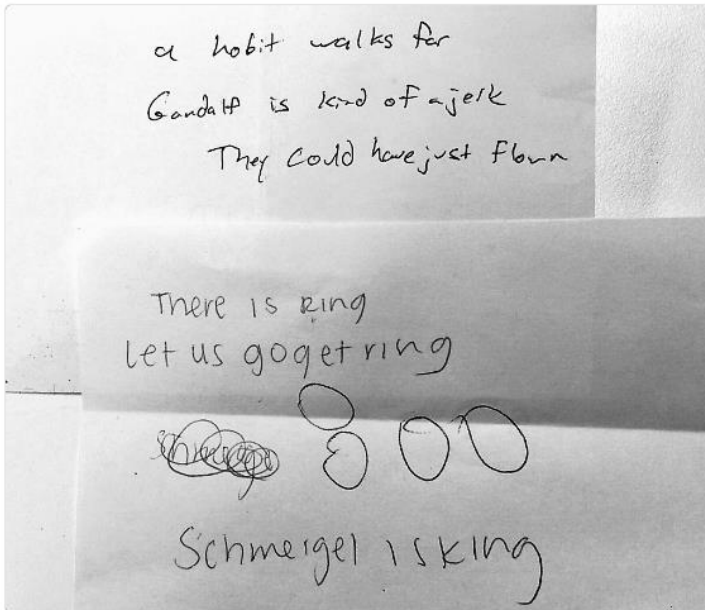 a hobit walks far
Gandalf is kind of a jerk
They could have just flown
There is Ring
let us go get ring
Schmeigel is king